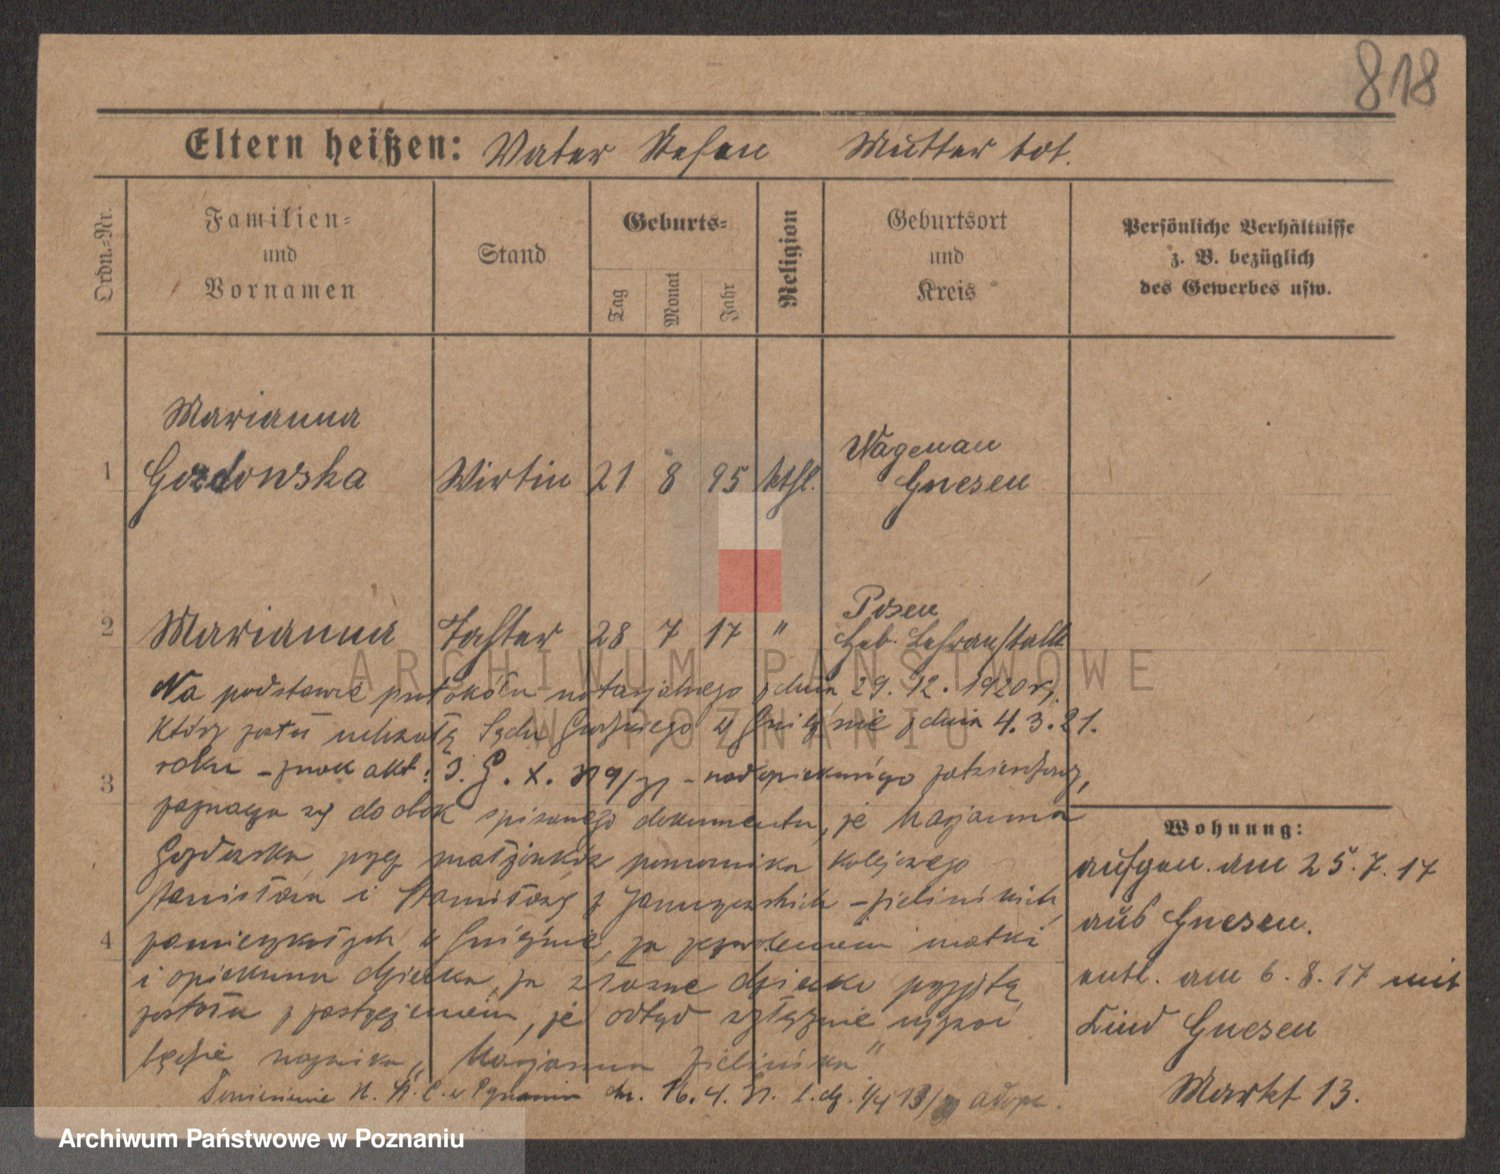 818
Eltern heißen: Vater Stefan Mutter tot.
Ordn.=Nr.
Familien= und Vornamen
Stand
Geburts=
Tag
Monat
Jahr
Religion
Geburtsort und Kreis
Persönliche Verhältnisse z. B. bezüglich des Gewerbes usw.
Marianna
1 Gozdowska Wirtin 21 8 95 kthl. Wagenau
Gnesen
2 Marianna Tochter 28 7 17 " Posen
Heb. Lehranstalt
Na podstawie protokółu notarjalnego z dnia 29. 12. 1920 r.
który został uchwałą Sądu Grodzkiego w Gnieźnie z dnia 4. 3. 21.
roku – znak akt:
3
zaznacza się do obok spisanego dokumentu, że Marjanna
przez małżonków pomocnika kolejowego
Stanisława i Stanisławy z – Zielińskich
4 zamieszkałych w Gnieźnie, za zezwoleniem matki
i opiekuna dziecka, za własne dziecko przyjętą
została z zastrzeżeniem, że odtąd wyłącznie używać
będzie nazwiska „Marjanna Zielińska”
16. 4. 21.
Wohnung:
aufgen. am 25. 7. 17
aus Gnesen.
entl. am 6. 8. 17 mit
Kind Gnesen
Markt 13.
ARCHIWUM PAŃSTWOWE
W POZNANIU
Archiwum Państwowe w Poznaniu